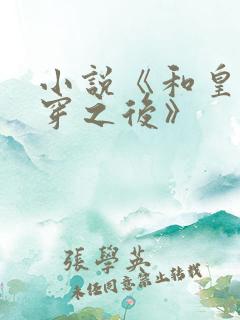 小說《和皇
穿之後》
張學英
未經同意禁止转載